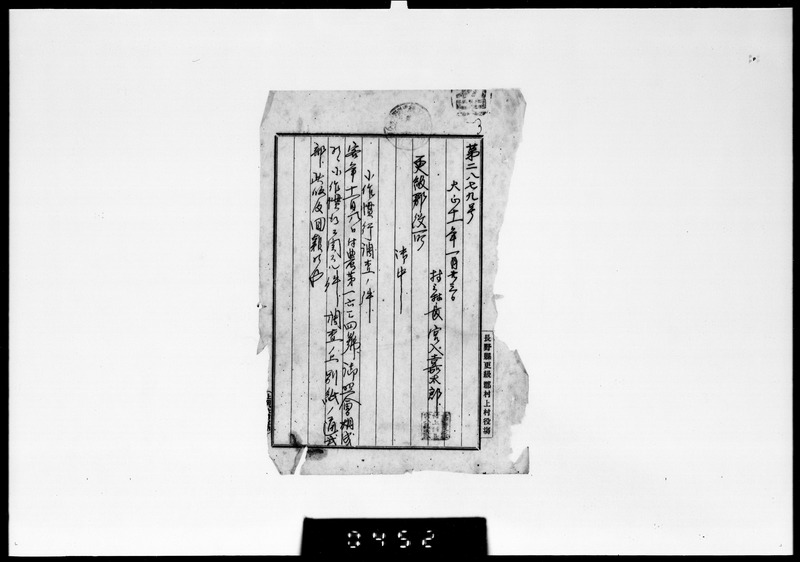 第二八七九号
大正十一年一月廿三日
村上村長 宮入嘉太郎
更級郡役所
御中
小作慣行調査ノ件
客年十一月八日付農第一六二四號御照會相成
小作慣行ニ関スル件調査ノ上別紙ノ通
此段及回報候也
長野縣更級郡村上村役場
0452